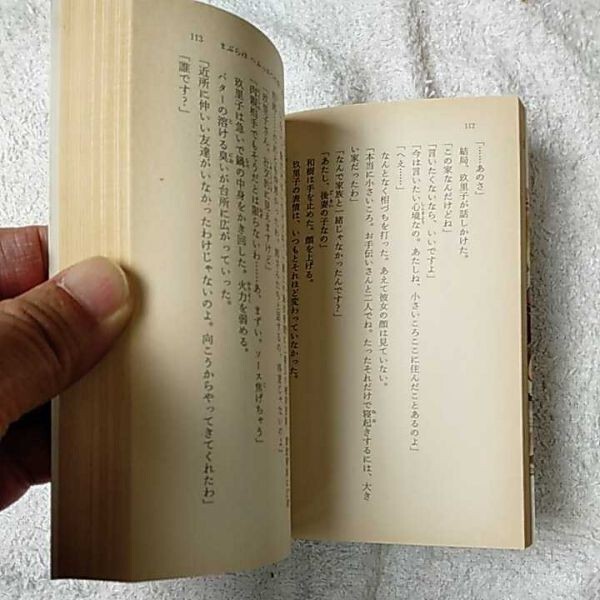 112
「……あのさ」
結局、玖里子が話しかけた。
「この家なんだけどね」
「言いたくないなら、いいですよ」
「今は言いたい心境なの。あたしね、小さいころここに住んだことあるのよ」
「へえ……」
なんとなく相づちを打った。あえて彼女の顔は見ていない。
「本当に小さいころ。お手伝いさんと二人でね。たったそれだけで寝起きするには、大き
い家だったわ」
「なんで家族と一緒じゃなかったんです？」
「あたし、後妻の子なの」
和樹は手を止めた。顔を上げる。
玖里子の表情は、いつもとそれほど変わっていなかった。
113
まぶらほ
「肉親相手でもそうだとは限らないわ……あ、まずい、ソース焦げちゃう」
玖里子は急いで鍋の中身をかき回した。火力を弱める。
バターの溶ける臭いが台所に広がっていった。
「近所に仲いい友達がいなかったわけじゃないのよ。向こうからやってきてくれたわ」
「誰です？」